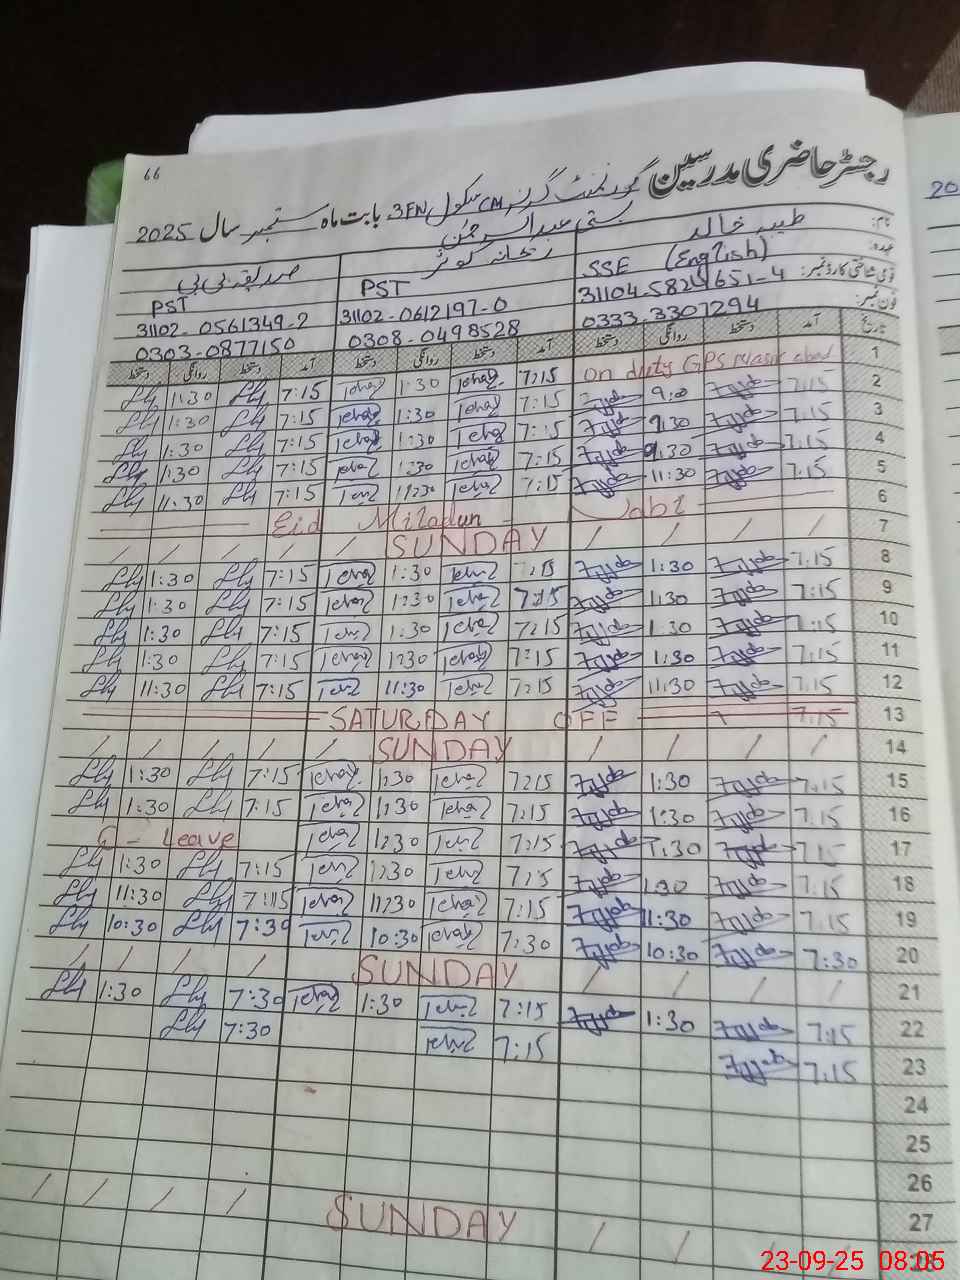 66
رجسٹر حاضری مدرسین گورنمنٹ گرلز CM سکول 3FW بابت ماہ ستمبر سال 2025
بستی عبدالرحمٰن
نام: طیبہ خالد ریحانہ کوثر صدیقہ بی بی
عہدہ: SSE (English) PST PST
قومی شناختی کارڈ نمبر: 31104-5824651-4 31102-0612197-0 31102-0561349-2
فون نمبر: 0333-3307294 0308-0498528 0303-0877150
تاریخ آمد دستخط روانگی دستخط آمد دستخط روانگی دستخط آمد دستخط روانگی دستخط
1 on duty GPS 7:15 1:30 7:15 1:30
2 7:15 9:00 7:15 1:30 7:15 1:30
3 7:15 9:30 7:15 1:30 7:15 1:30
4 7:15 9:30 7:15 1:30 7:15 1:30
5 7:15 11:30 7:15 11:30 7:15 11:30
6 Eid Miladun Nabi
7 SUNDAY
8 7:15 1:30 7:15 1:30 7:15 1:30
9 7:15 1:30 7:15 1:30 7:15 1:30
10 7:15 1:30 7:15 1:30 7:15 1:30
11 7:15 1:30 7:15 1:30 7:15 1:30
12 7:15 11:30 7:15 11:30 7:15 11:30
13 SATURDAY OFF 7:15
14 SUNDAY
15 7:15 1:30 7:15 1:30 7:15 1:30
16 7:15 1:30 7:15 1:30 7:15 1:30
17 7:15 1:30 7:15 1:30 Leave
18 7:15 1:30 7:15 1:30 7:15 1:30
19 7:15 11:30 7:15 11:30 7:15 11:30
20 7:30 10:30 7:30 10:30 7:30 10:30
21 SUNDAY
22 7:15 1:30 7:15 1:30 7:30 1:30
23 7:15 7:15 7:30
24
25
26
27
28 SUNDAY
20
23-09-25 08:05